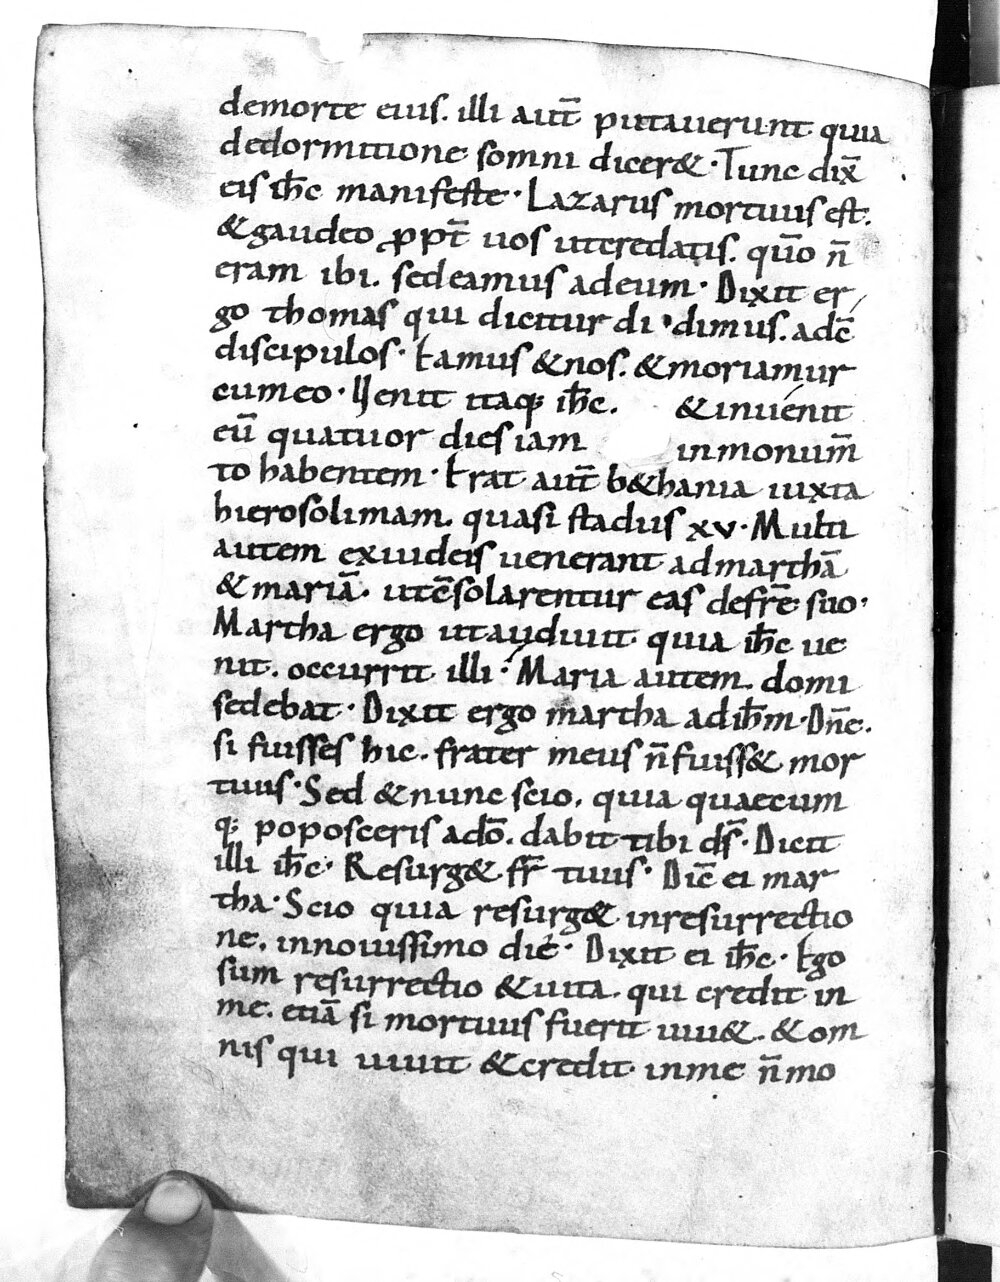 demorte eius. illi aut̄ putauerunt quia
dedormitione somni dicer&. Tunc dix̄
eis ih̄c manifeste. Lazarus mortuus est.
& gaudeo ꝓpt̄ uos utcredatis. quō n̄
eram ibi. sedeamus adeum. Dixit er
go thomas qui dicitur didimus. adc̄
discipulos. Eamus & nos. & moriamur
cumeo. Uenit itaq; ih̄c. & inuenit
eū quatuor dies iam inmonum̄
to habentem. Erat aut̄ b&hania iuxta
hierosolimam. quasi stadiis xv. Multi
autem exiudeis uenerant admarthā
& mariā. utc̄solarentur eas defrē suo.
Martha ergo utaudiuit quia ih̄c ue
nit. occurrit illi. Maria autem. domi
sedebat. Dixit ergo martha adih̄m. Dn̄e.
si fuisses hic. frater meus n̄ fuiss& mor
tuus. Sed & nunc scio. quia quaecum
q; poposceris adō. dabit tibi ds̄. Dicit
illi ih̄c. Resurg& fr̄ tuus. Dic̄ ei mar
tha. Scio quia resurg& inresurrectio
ne. innouissimo die. Dixit ei ih̄c. Ego
sum resurrectio & uita. qui credit in
me. etiā si mortuus fuerit uiu&. & om
nis qui uiuit & credit inme n̄ mo